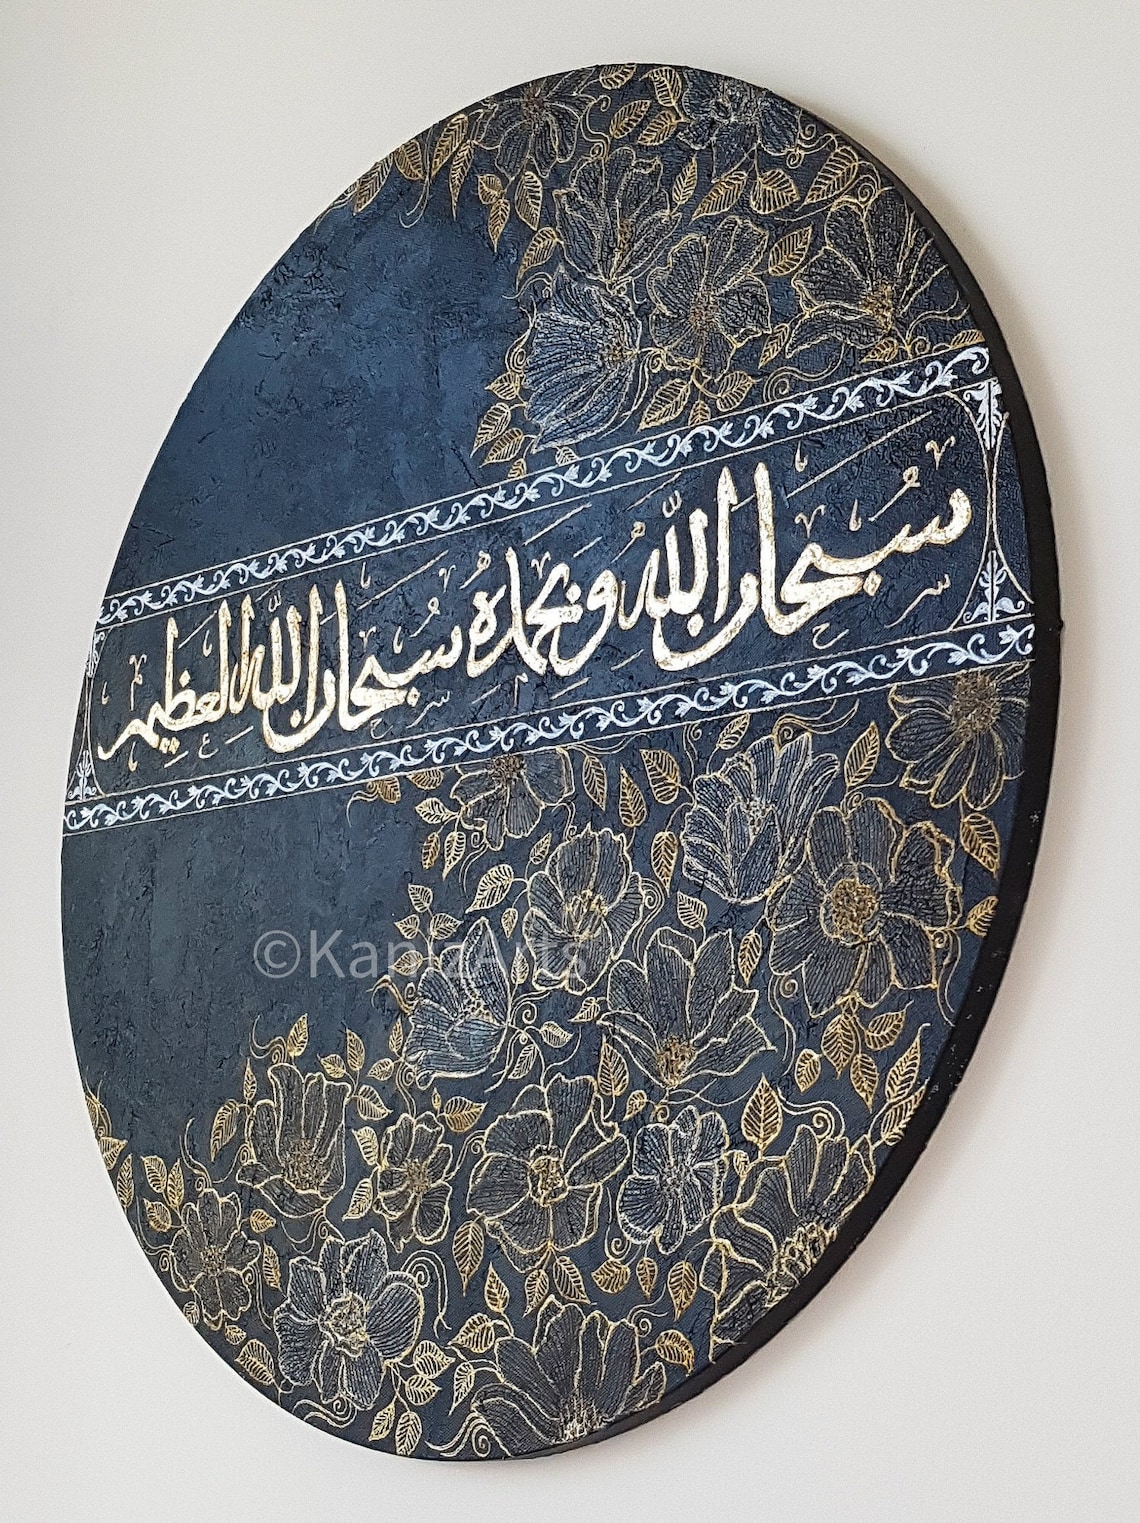 سبحان الله وبحمده سبحان الله العظيم
©KanizArts